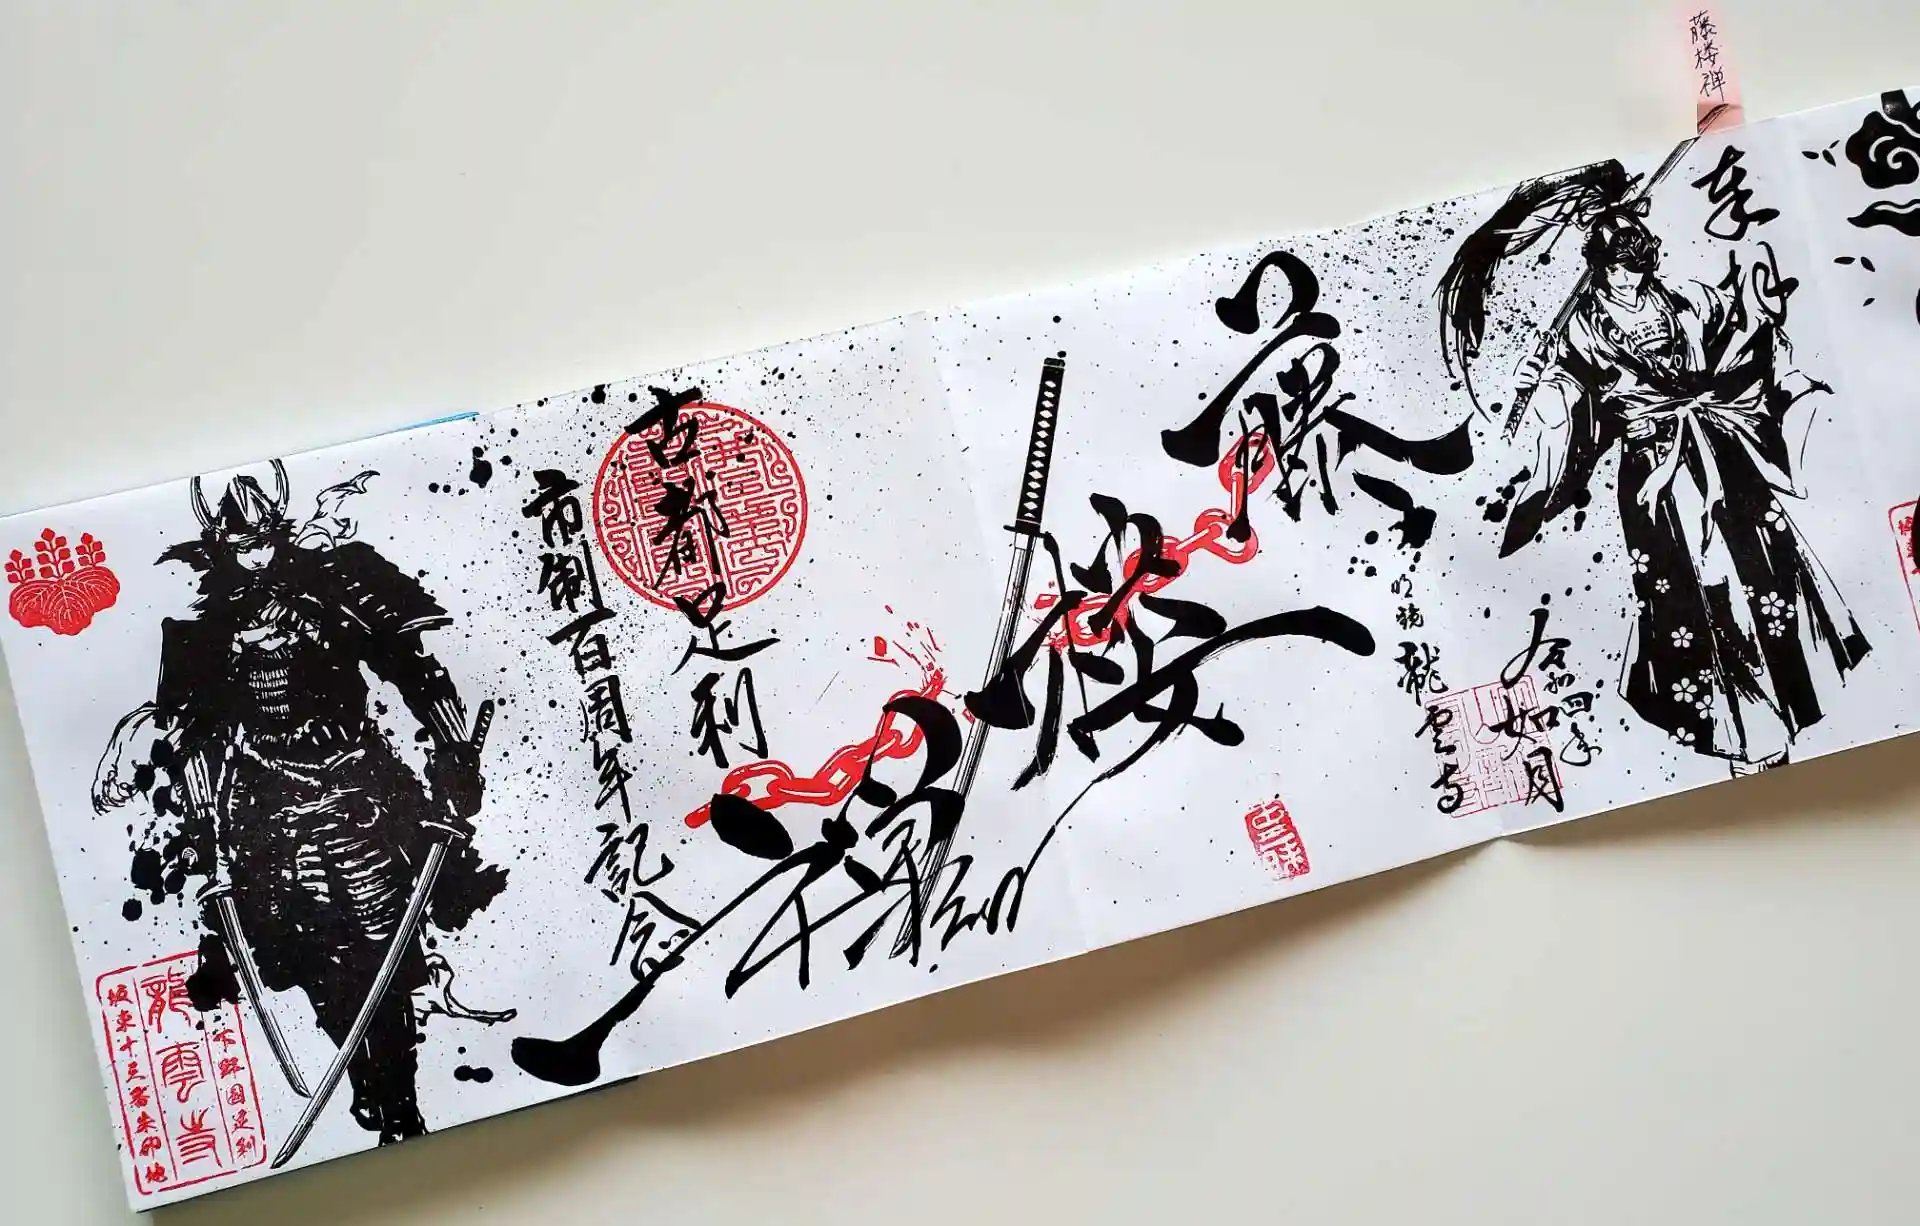 藤桜禅
奉拝
令和四年
如月
明鏡 龍雲寺
藤
桜
禅
古都足利
市制百周年記念
下野国足利
龍雲寺
坂東十三番朱印地